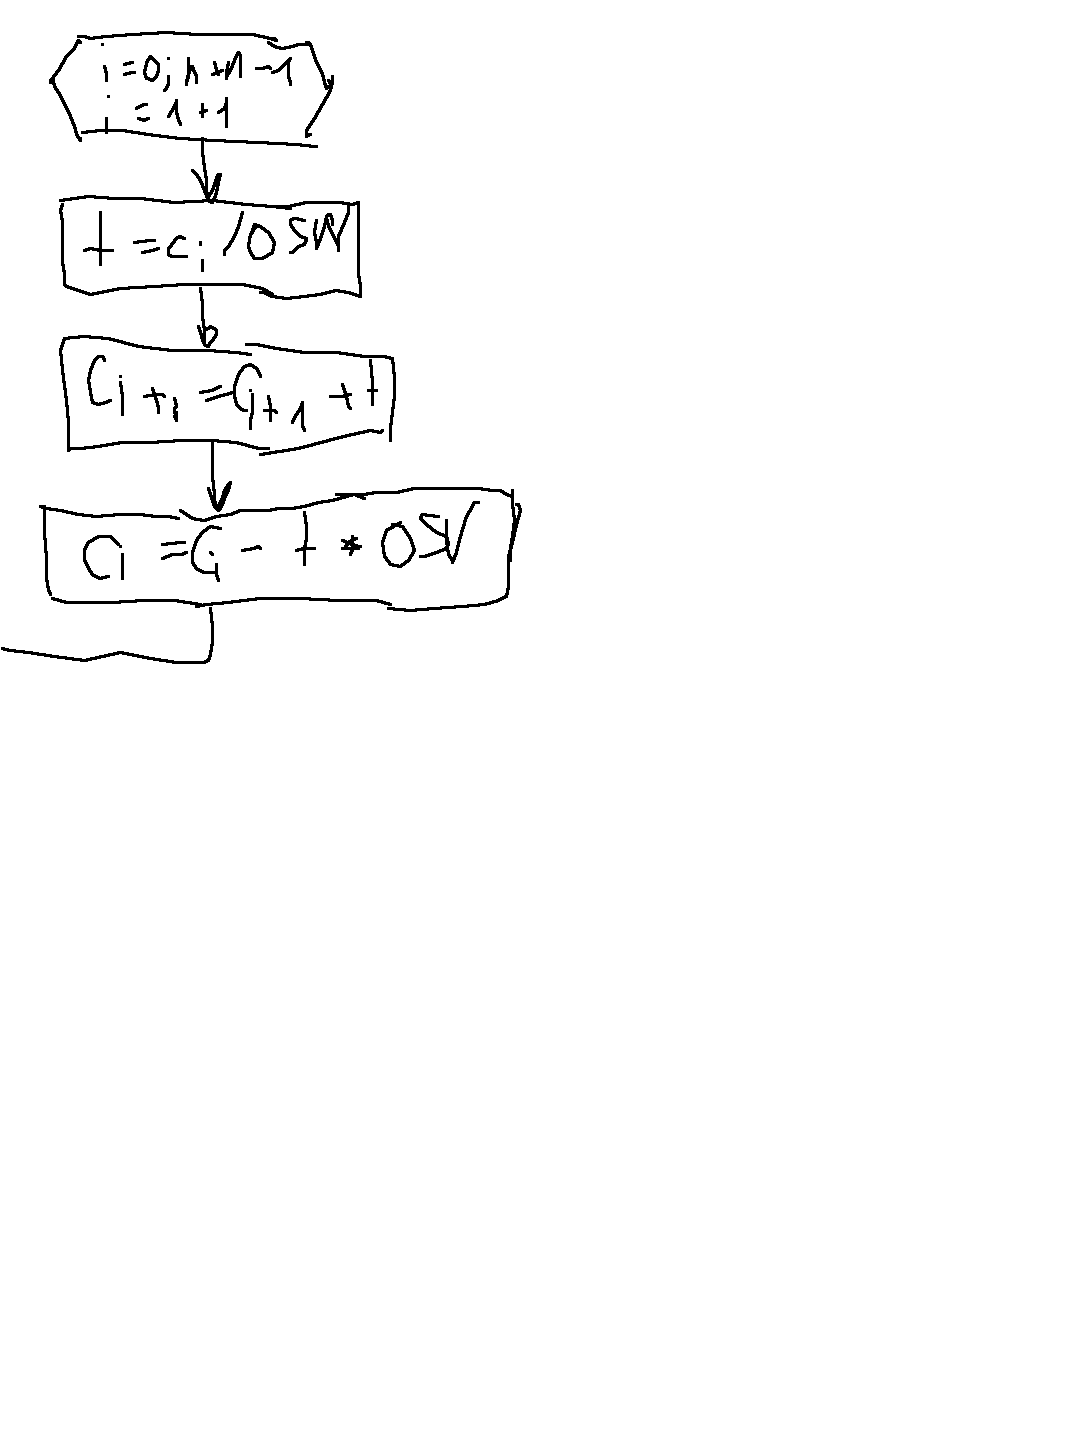 i = 0; n + n - 1
i = 1 + 1
t = ci / OSN
Ci+1 = Ci+1 + t
Ci = Ci - t * OSN